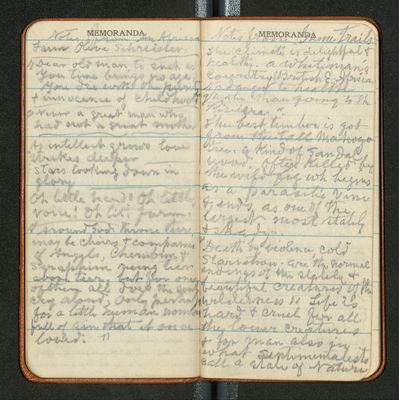 MEMORANDA
Notes from an African
Farm Olive Schreiner
Dear old man to such as
You time brings no age.
You die with the purity
& innocence of childhood
never a great man who
had not a great mother
As intellect grows love
strikes deeper
Stars looking down in
glory
Oh little hand! Oh little
voice! Oh lit' form!
around God's throne there
may be choirs & companies
of Angels, Cherubim &
Seraphim rising tier
above tier, but for one
of them all does the soul
cry aloud, Only perhaps
for a little human woman
full of sin that it once
loved.
MEMORANDA
Notes Game Trails
The climate is delightful &
healthy. a Whiteman's
country British E. Africa
is no to health
than going to the
The best timber is got
from the tall Mahogo
Tree. a kind of Sandal
wood. Often killed by
the wild fig wh begins
as a parasitic vine
& ends as one of the
largest most stately
& shady.
Death by violence cold
Starvation are the normal
endings of the stately &
beautiful creatures of the
wilderness. Life is
hard & cruel for all
the lower creatures
& for man also in
what Sentimentalists
call a State of Nature